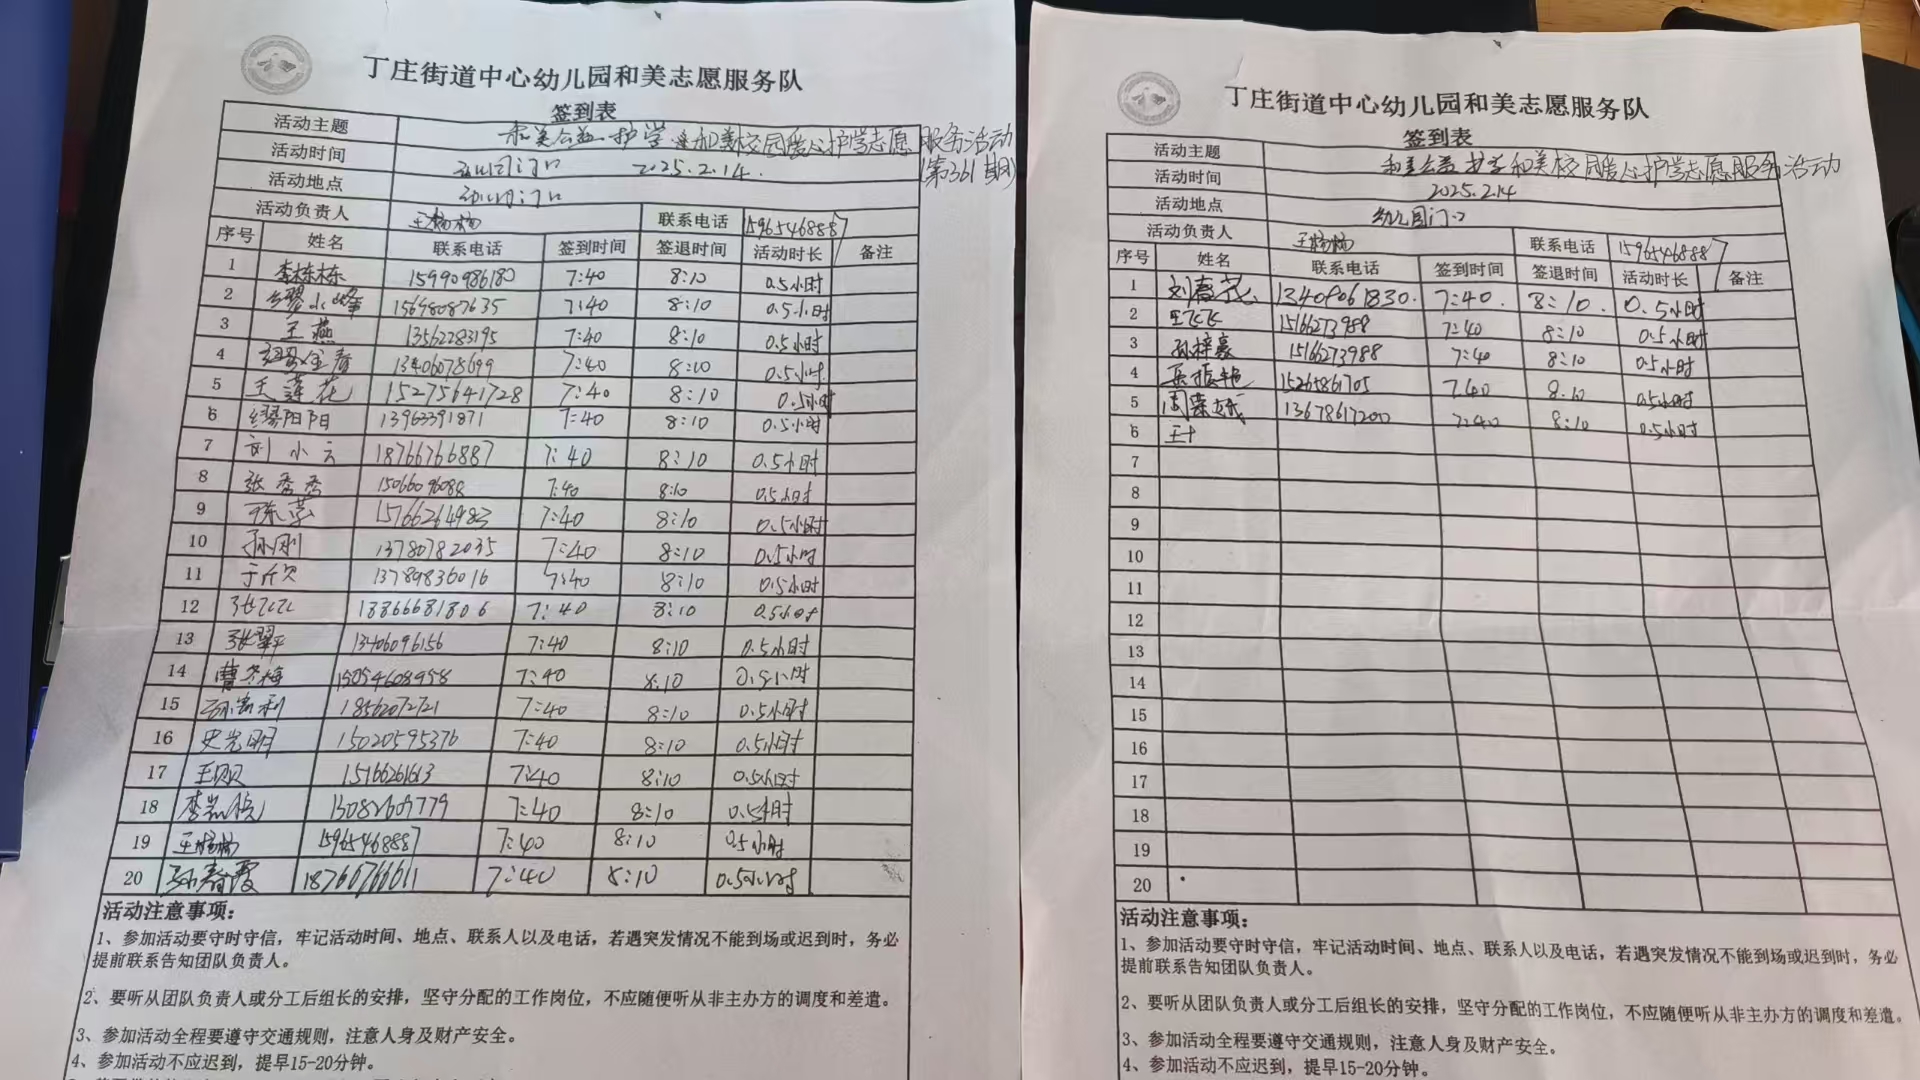 丁庄街道中心幼儿园和美志愿服务队
签到表
活动主题 和美公益·护学 和美校园爱心护学志愿服务活动
(第361期)
活动时间 2025.2.14.
活动地点 幼儿园门口
活动负责人 王杨杨 联系电话 15965468887
序号 姓名 联系电话 签到时间 签退时间 活动时长 备注
1 李栋栋 15990986180 7:40 8:10 0.5小时
2 缪小峰 15698087635 7:40 8:10 0.5小时
3 王燕 13562283195 7:40 8:10 0.5小时
4 13406078699 7:40 8:10 0.5小时
5 王莲花 15275641728 7:40 8:10 0.5小时
6 缪阳阳 13963391871 7:40 8:10 0.5小时
7 刘小云 18766766887 7:40 8:10 0.5小时
8 张秀秀 15066096088 7:40 8:10 0.5小时
9 15766264983 7:40 8:10 0.5小时
10 孙刚 13780782035 7:40 8:10 0.5小时
11 13789836016 7:40 8:10 0.5小时
12 13866681806 7:40 8:10 0.5小时
13 张翠平 13406096156 7:40 8:10 0.5小时
14 曹冬梅 15054608958 7:40 8:10 0.5小时
15 18562072721 7:40 8:10 0.5小时
16 史光明 15020595376 7:40 8:10 0.5小时
17 王贝 15166261613 7:40 8:10 0.5小时
18 13082609779 7:40 8:10 0.5小时
19 王杨杨 15965468887 7:40 8:10 0.5小时
20 孙春霞 18766766611 7:40 8:10 0.5小时
活动注意事项:
1、参加活动要守时守信，牢记活动时间、地点、联系人以及电话，若遇突发情况不能到场或迟到时，务必
提前联系告知团队负责人。
2、要听从团队负责人或分工后组长的安排，坚守分配的工作岗位，不应随便听从非主办方的调度和差遣。
3、参加活动全程要遵守交通规则，注意人身及财产安全。
4、参加活动不应迟到，提早15-20分钟。
丁庄街道中心幼儿园和美志愿服务队
签到表
活动主题 和美公益 护学 和美校园爱心护学志愿服务活动
活动时间 2025.2.14
活动地点 幼儿园门口
活动负责人 王杨杨 联系电话 15965468887
序号 姓名 联系电话 签到时间 签退时间 活动时长 备注
1 刘春花 13409061830. 7:40. 8:10. 0.5小时
2 王飞飞 15166273988 7:40 8:10 0.5小时
3 孙梓豪 15166273988 7:40 8:10 0.5小时
4 15265861705 7:40 8:10 0.5小时
5 13678617200 7:40 8:10 0.5小时
6
7
8
9
10
11
12
13
14
15
16
17
18
19
20
活动注意事项:
1、参加活动要守时守信，牢记活动时间、地点、联系人以及电话，若遇突发情况不能到场或迟到时，务必
提前联系告知团队负责人。
2、要听从团队负责人或分工后组长的安排，坚守分配的工作岗位，不应随便听从非主办方的调度和差遣。
3、参加活动全程要遵守交通规则，注意人身及财产安全。
4、参加活动不应迟到，提早15-20分钟。